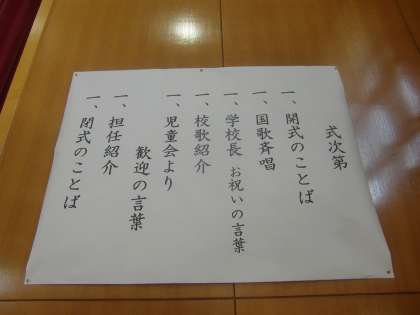 式次第
一、開式のことば
一、国歌斉唱
一、学校長 お祝いの言葉
一、校歌紹介
一、児童会より
歓迎の言葉
一、担任紹介
一、閉式のことば